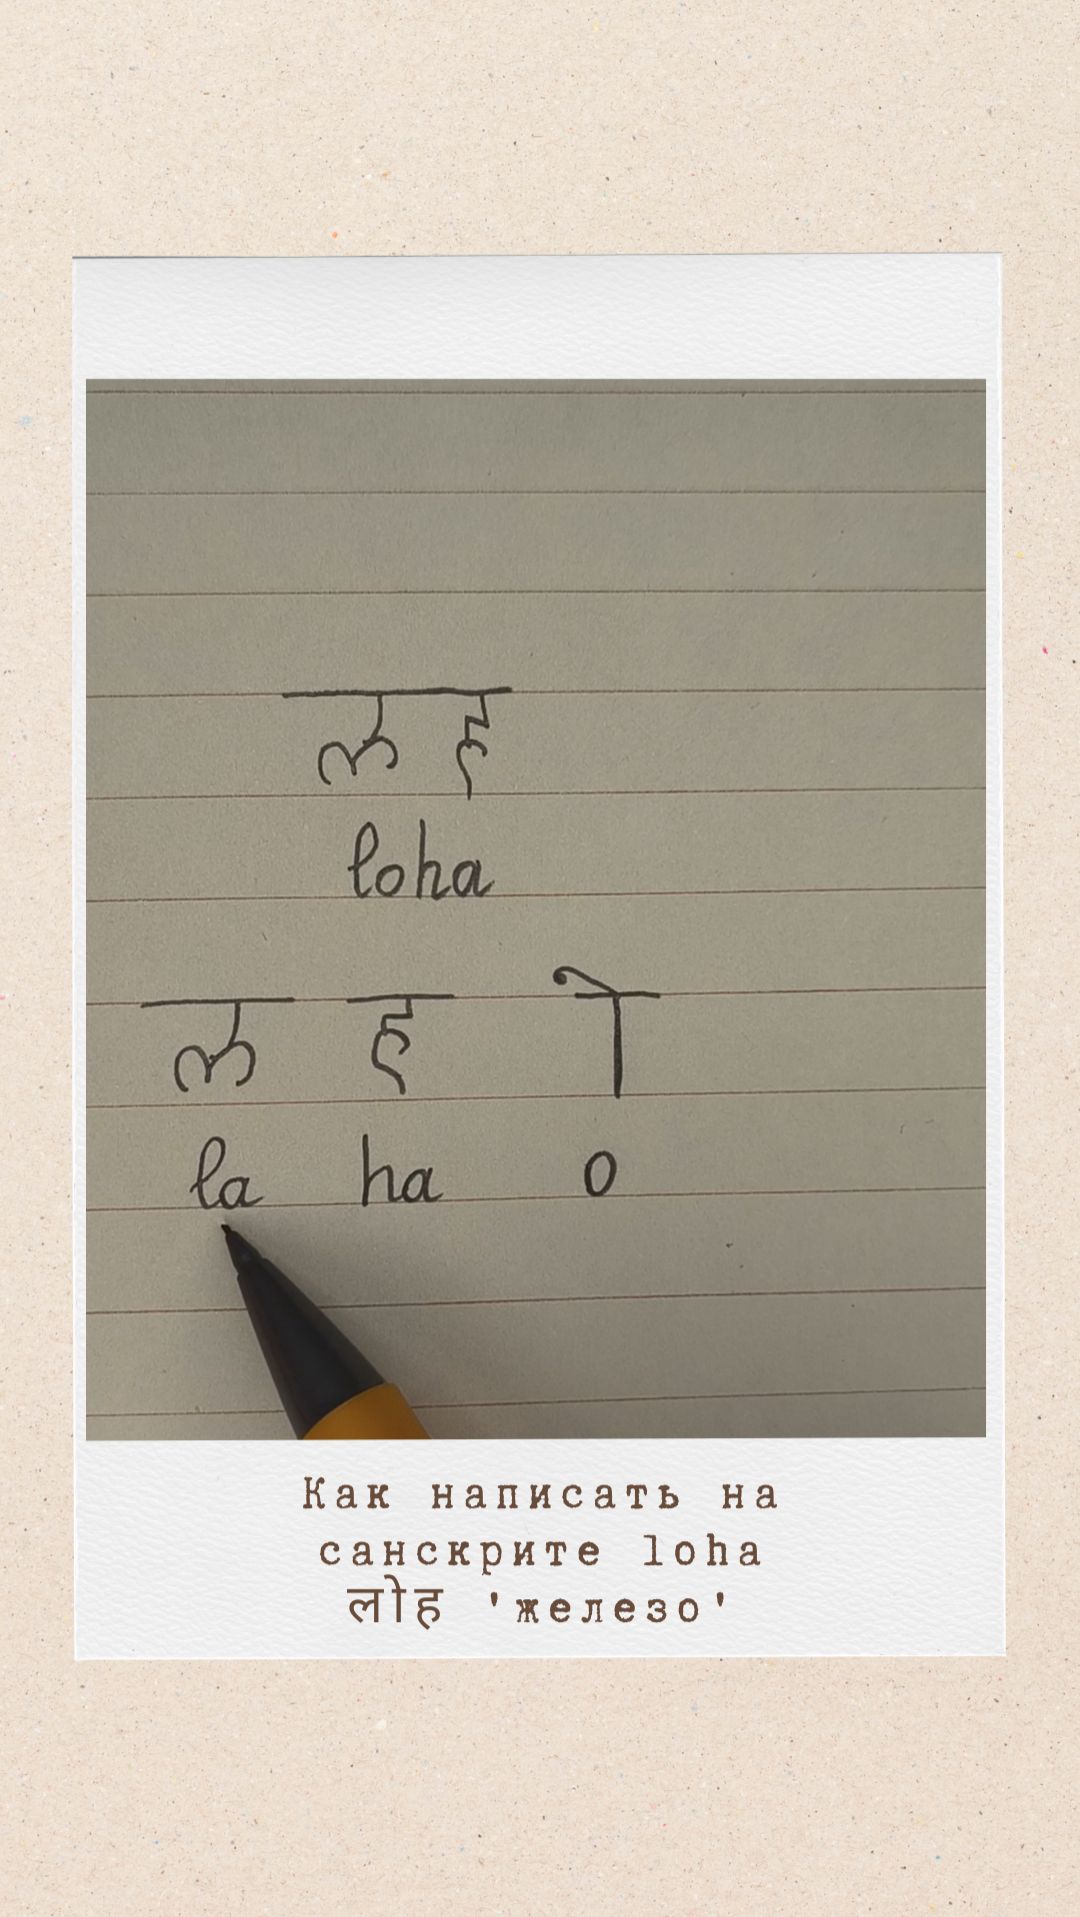 लह
loha
ल ह ो
la ha o
Как написать на
санскрите loha
लोह 'железо'